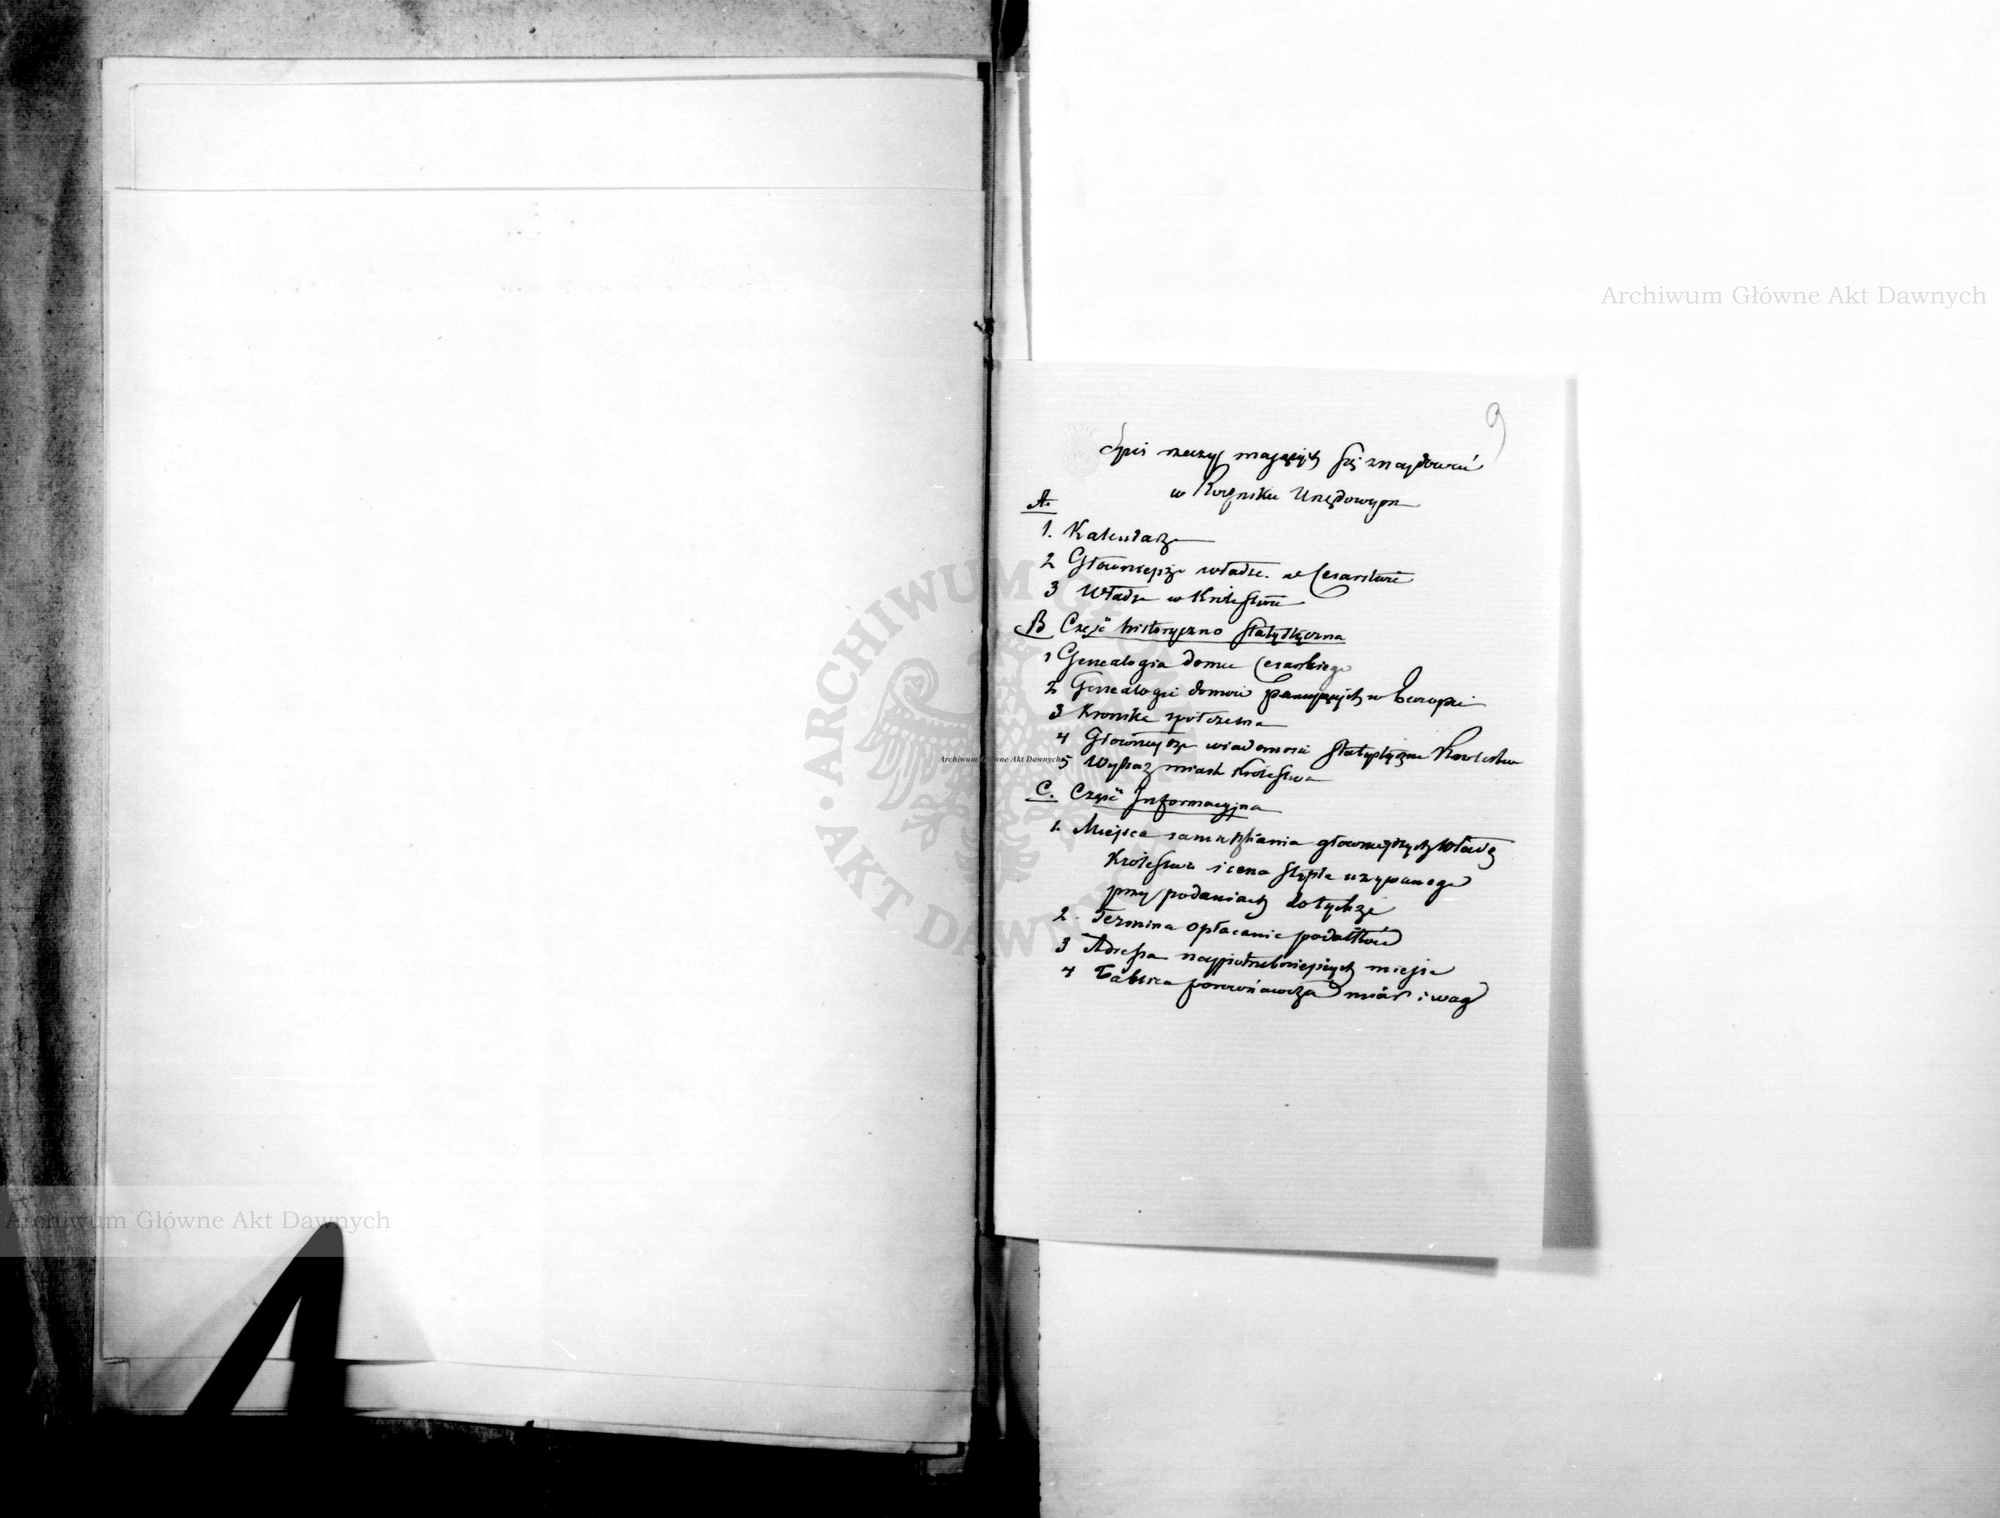 9
Spis rzeczy mających się znajdować
w Roczniku Urzędowym
A.
1. Kalendarz
2 Głowniejsze władze w Cesarstwie
3 Władze w Królestwie
B Część historyczno statystyczna
1 Genealogia domu Cesarskiego
2 Genealogie domów panujących w Europie
3 Kronika społczesna
4 Głowniejsze wiadomości statystyczne Królestwa
5 Wykaz miast Królestwa
C. Część Informacyjna
1. Miejsca zamieszkania głowniejszych Władz
Królestwa i cena stępla używanego
przy podaniach do tychże
2. Termina opłacania podatków
3 Adressa naypotrzebniejszych miejsc
4 Tablica porównawcza miar i wag
Archiwum Główne Akt Dawnych
Archiwum Główne Akt Dawnych
Archiwum Główne Akt Dawnych
ARCHIWUM
AKT DAWN